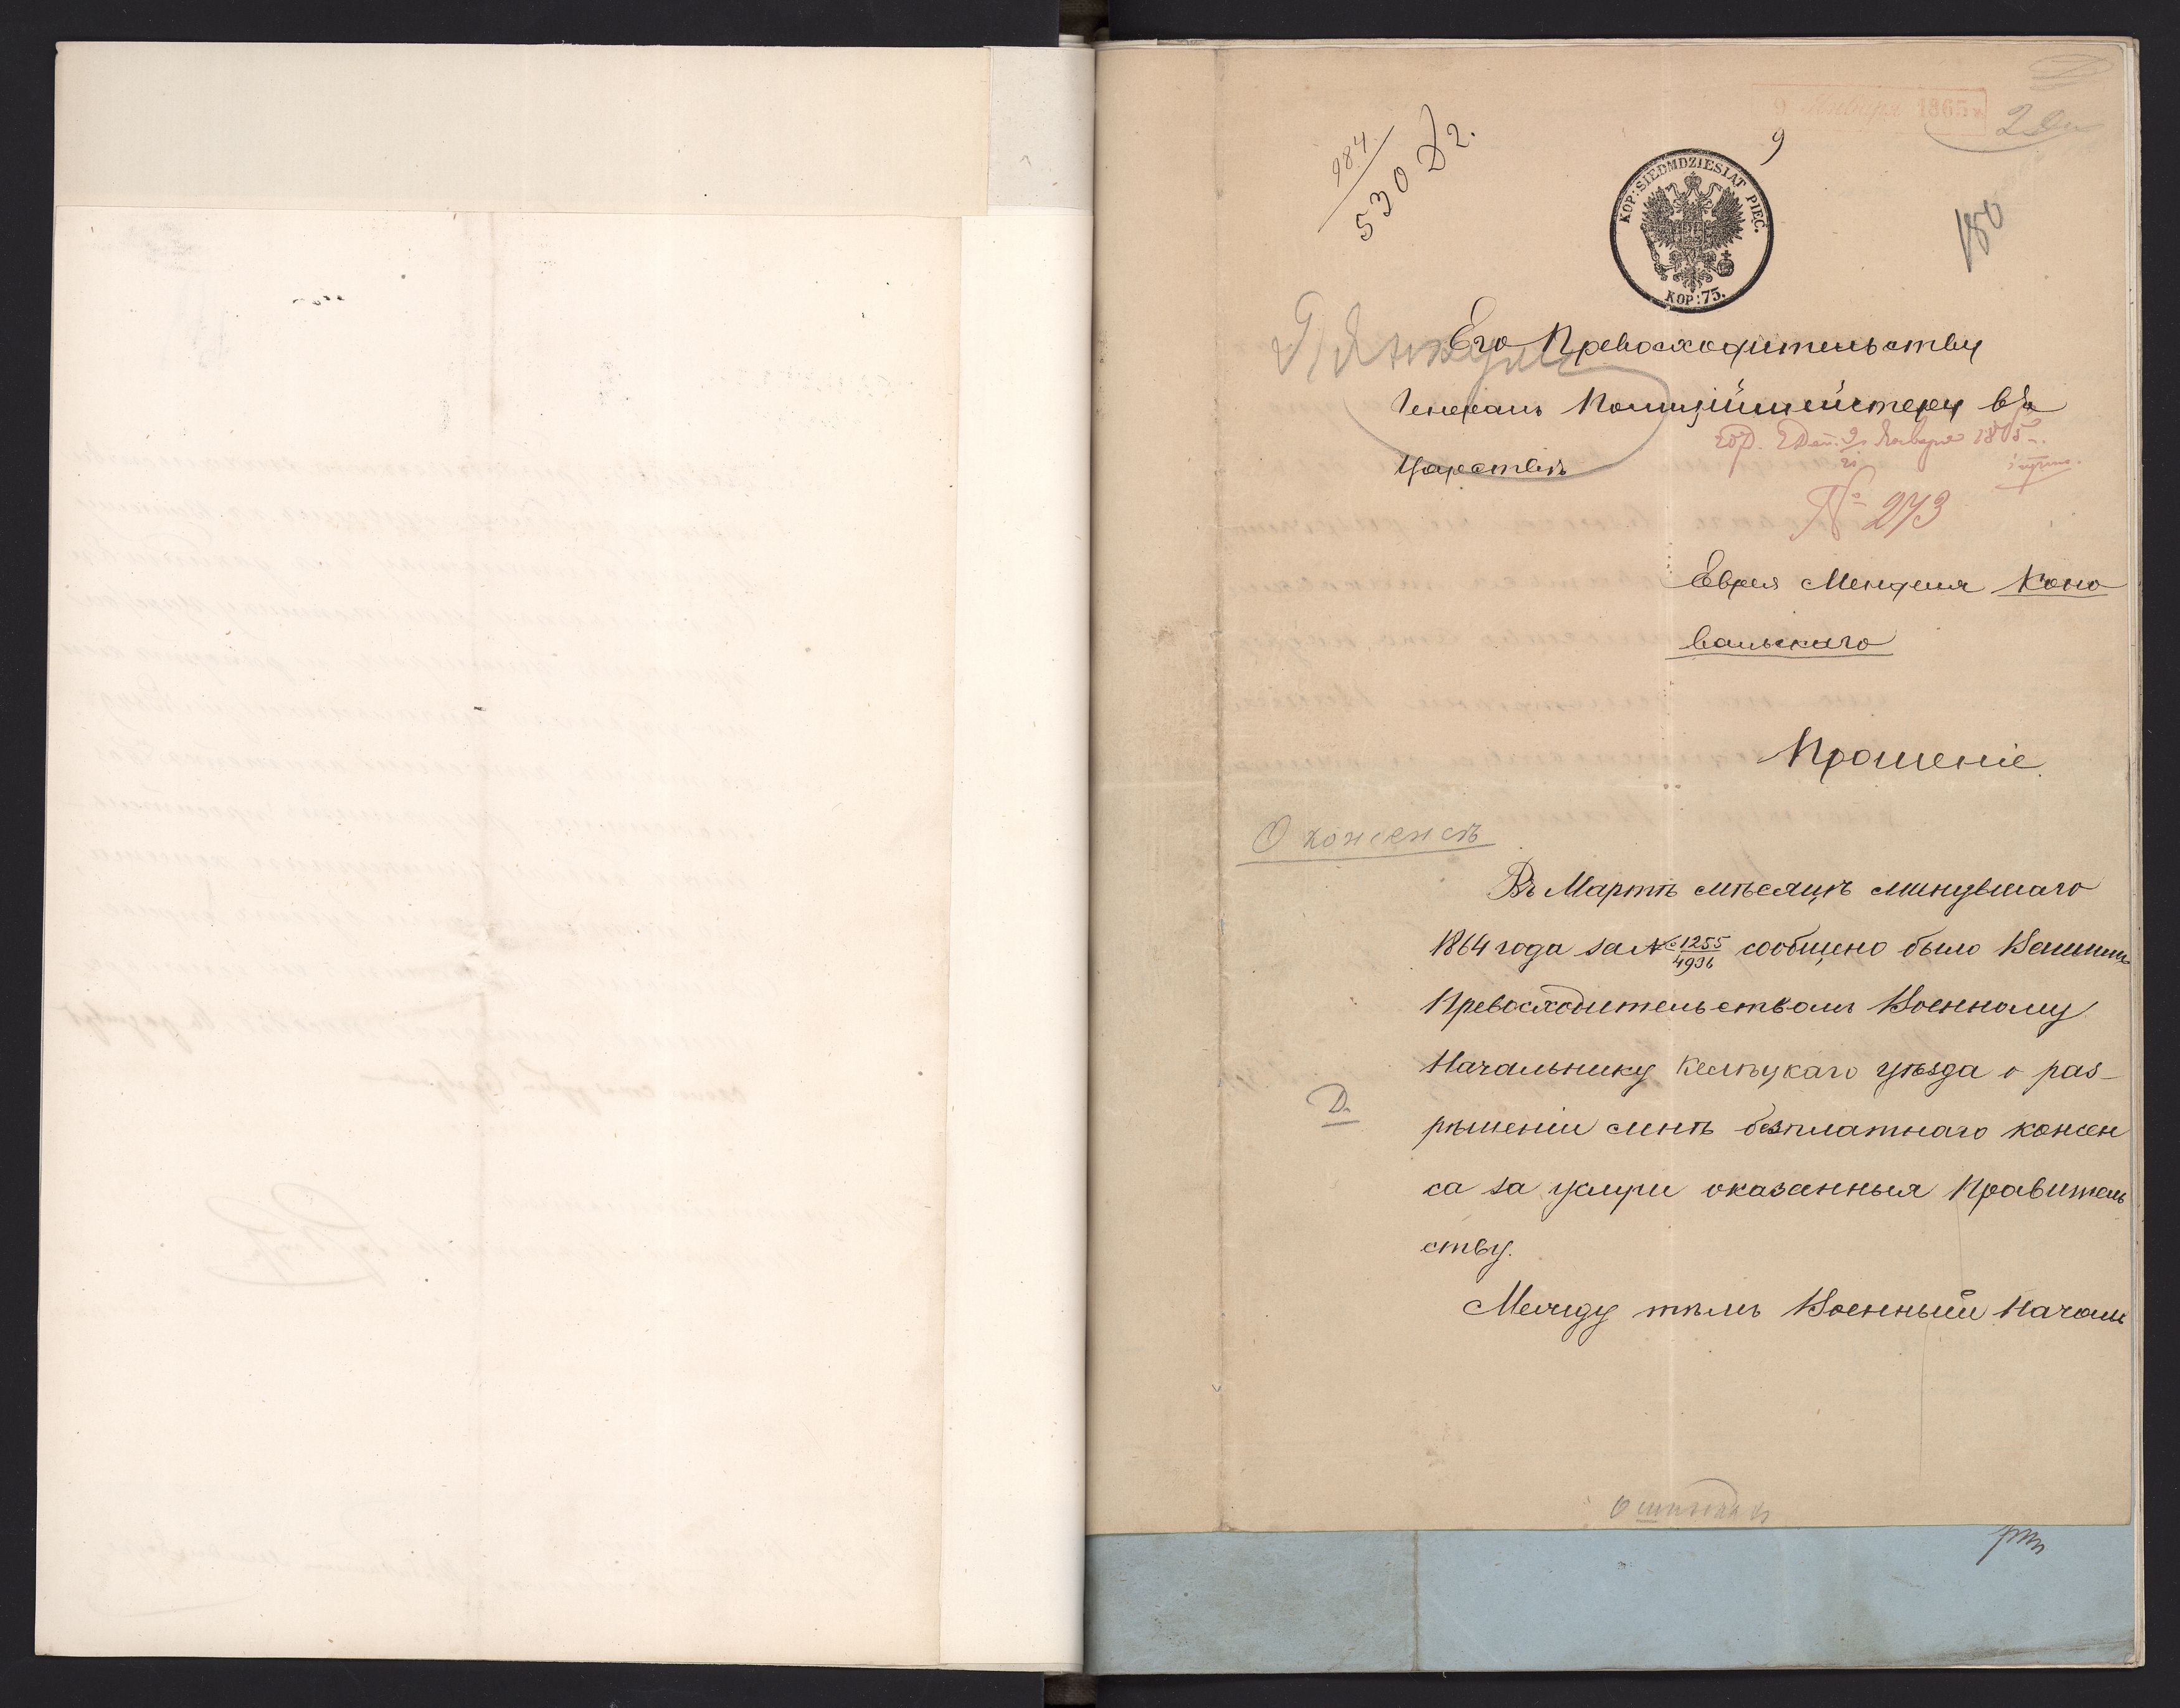 9 Января 1865
984
530 Д2.
9
180
KOP: SIEDMDZIESIAT PIĘC.
KOP: 75.
Его Превосходительству
Генералъ Полиціймейстеру въ
Царствѣ
9 Января 1865
№ 273
Еврея Менделя Коно
вальскаго
Прошеніе
О консенсѣ
Въ Мартѣ мѣсяцѣ минувшаго
1864 года за № 1255/4936 сообщено было Вашимъ
Превосходительствомъ Военному
Начальнику Келецкаго уѣзда о раз-
рѣшеніи мнѣ безплатнаго консен
са за услуги оказанныя Правитель
ству.
Д.
Между тѣмъ Военный Началь